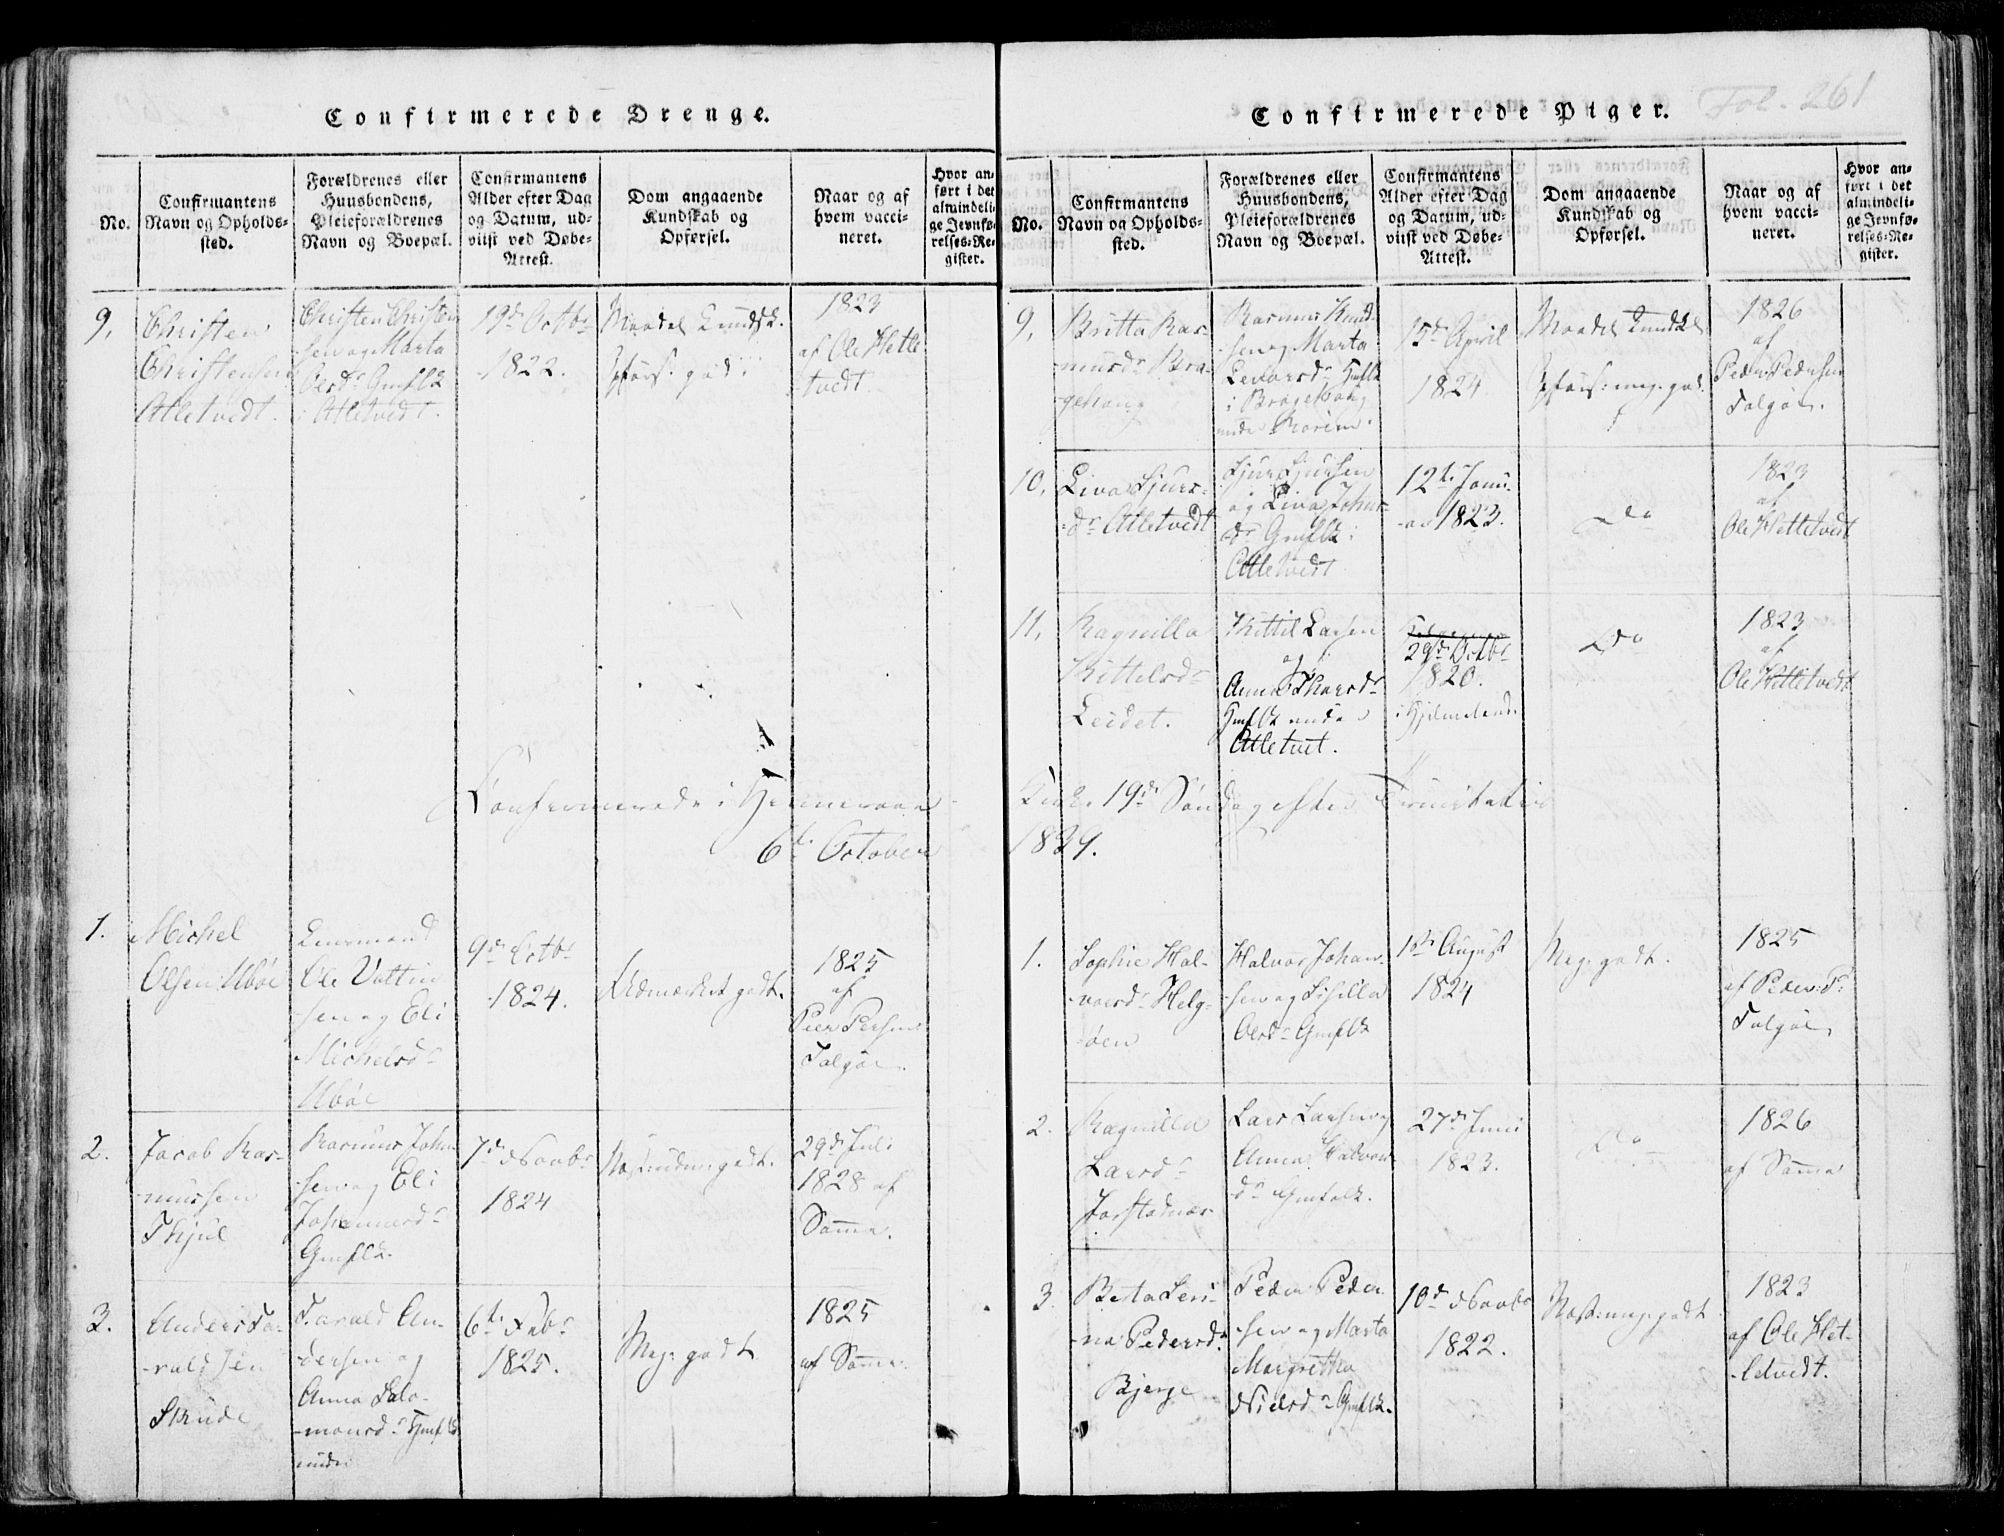 Confirmerede Drenge.
No.
Confirmantens
Navn og Opholds-
sted.
Forældrenes eller
Huusbondens,
Pleieforældrenes
Navn og Boepæl.
Confirmantens
Alder efter Dag
og Datum, ud-
viist ved Døbe-
Attest.
Dom angaaende
Kundskab og
Opførsel.
Naar og af
hvem vacci-
neret.
Hvor an-
ført i det
almindeli-
ge Jevnfø-
relses-Re-
gister.
9.
Christen
Christensen
Atletvedt.
Christen Christen
sen og Marta
Olsdr Gmflk
i Atletvedt.
19de Octbr
1822.
Maadel. Kundsk.
Opførs. god.
1823
af Ole Hetle
tvedt.
Confirmerede i
6te October
1.
Michel
Olsen Ubøe
Lensmand
Ole Vatten
sen og Eli
Michelsdr
Ubøe
9de Octbr
1824.
Udmærket godt.
1825
af
Peer Persen
Talgøe.
2.
Jacob Ras-
mussen
Rasmus Johan
sen og Eli
Johannesdr
Gmflk.
7de Novbr
1824
29de Juli
1828 af
Samme.
3.
Anders Ta-
raldsen
Skude
Tarald An-
dersen og
Anna Salo-
monsdr Hmflk
under
6te Febr
1825.
Meg. godt
1825
af Samme.
Fol. 261
Confirmerede Piger.
No.
Confirmantens
Navn og Opholds-
sted.
Forældrenes eller
Huusbondens,
Pleieforældrenes
Navn og Boepæl.
Confirmantens
Alder efter Dag
og Datum, ud-
viist ved Døbe-
Attest.
Dom angaaende
Kundskab og
Opførsel.
Naar og af
hvem vacci-
neret.
Hvor an-
ført i det
almindeli-
ge Jevnfø-
relses-Re-
gister.
9.
Britta Ras-
musdr
Rasmus Knud-
sen og Marta
Hmflk
under
15de April
1824.
Maadel. Kundsk.
Opførs: meg. god.
1826
af
Peder Pedersen
Talgøe.
10.
Liva Sjurs-
dr Atletvedt
Sjur Sjursen
og Liva Johns-
dr Gmflk i
Atletvedt
12te Janu-
ar 1823.
Do
1823
af
Ole Hetletvedt
11.
Ragnilla
Kittelsdr
Leidet.
Kittil Larsen
og
Anna
Hmflk under
Atletvet.
29de Octbr
1820.
i Hjelmeland
Do
1823
af
Ole Hetletvedt
Kirke 19de Søndag efter Trinitatis
1839.
1.
Sophie Hal-
vorsdr Helg-
øen
Halvor Johan-
sen og Sisilla
Olsdr Gmflk
1ste August
1824
Meg. godt.
1825
af Peder P.
Talgøe
2.
Ragnilla
Larsdr
Jørstadnæs
Lars Larsen og
Anna Halvors
dr Gmfolk.
27de Juni
1823.
Do
1826
af Samme
3.
Berta Seri-
na Pedersdr
Bjerge
Peder Peder
sen og Marta
Margretha
Nielsdr Gmflk.
10de Novbr
1822.
Næst: meg. godt
1823
af Ole Het-
letvedt.